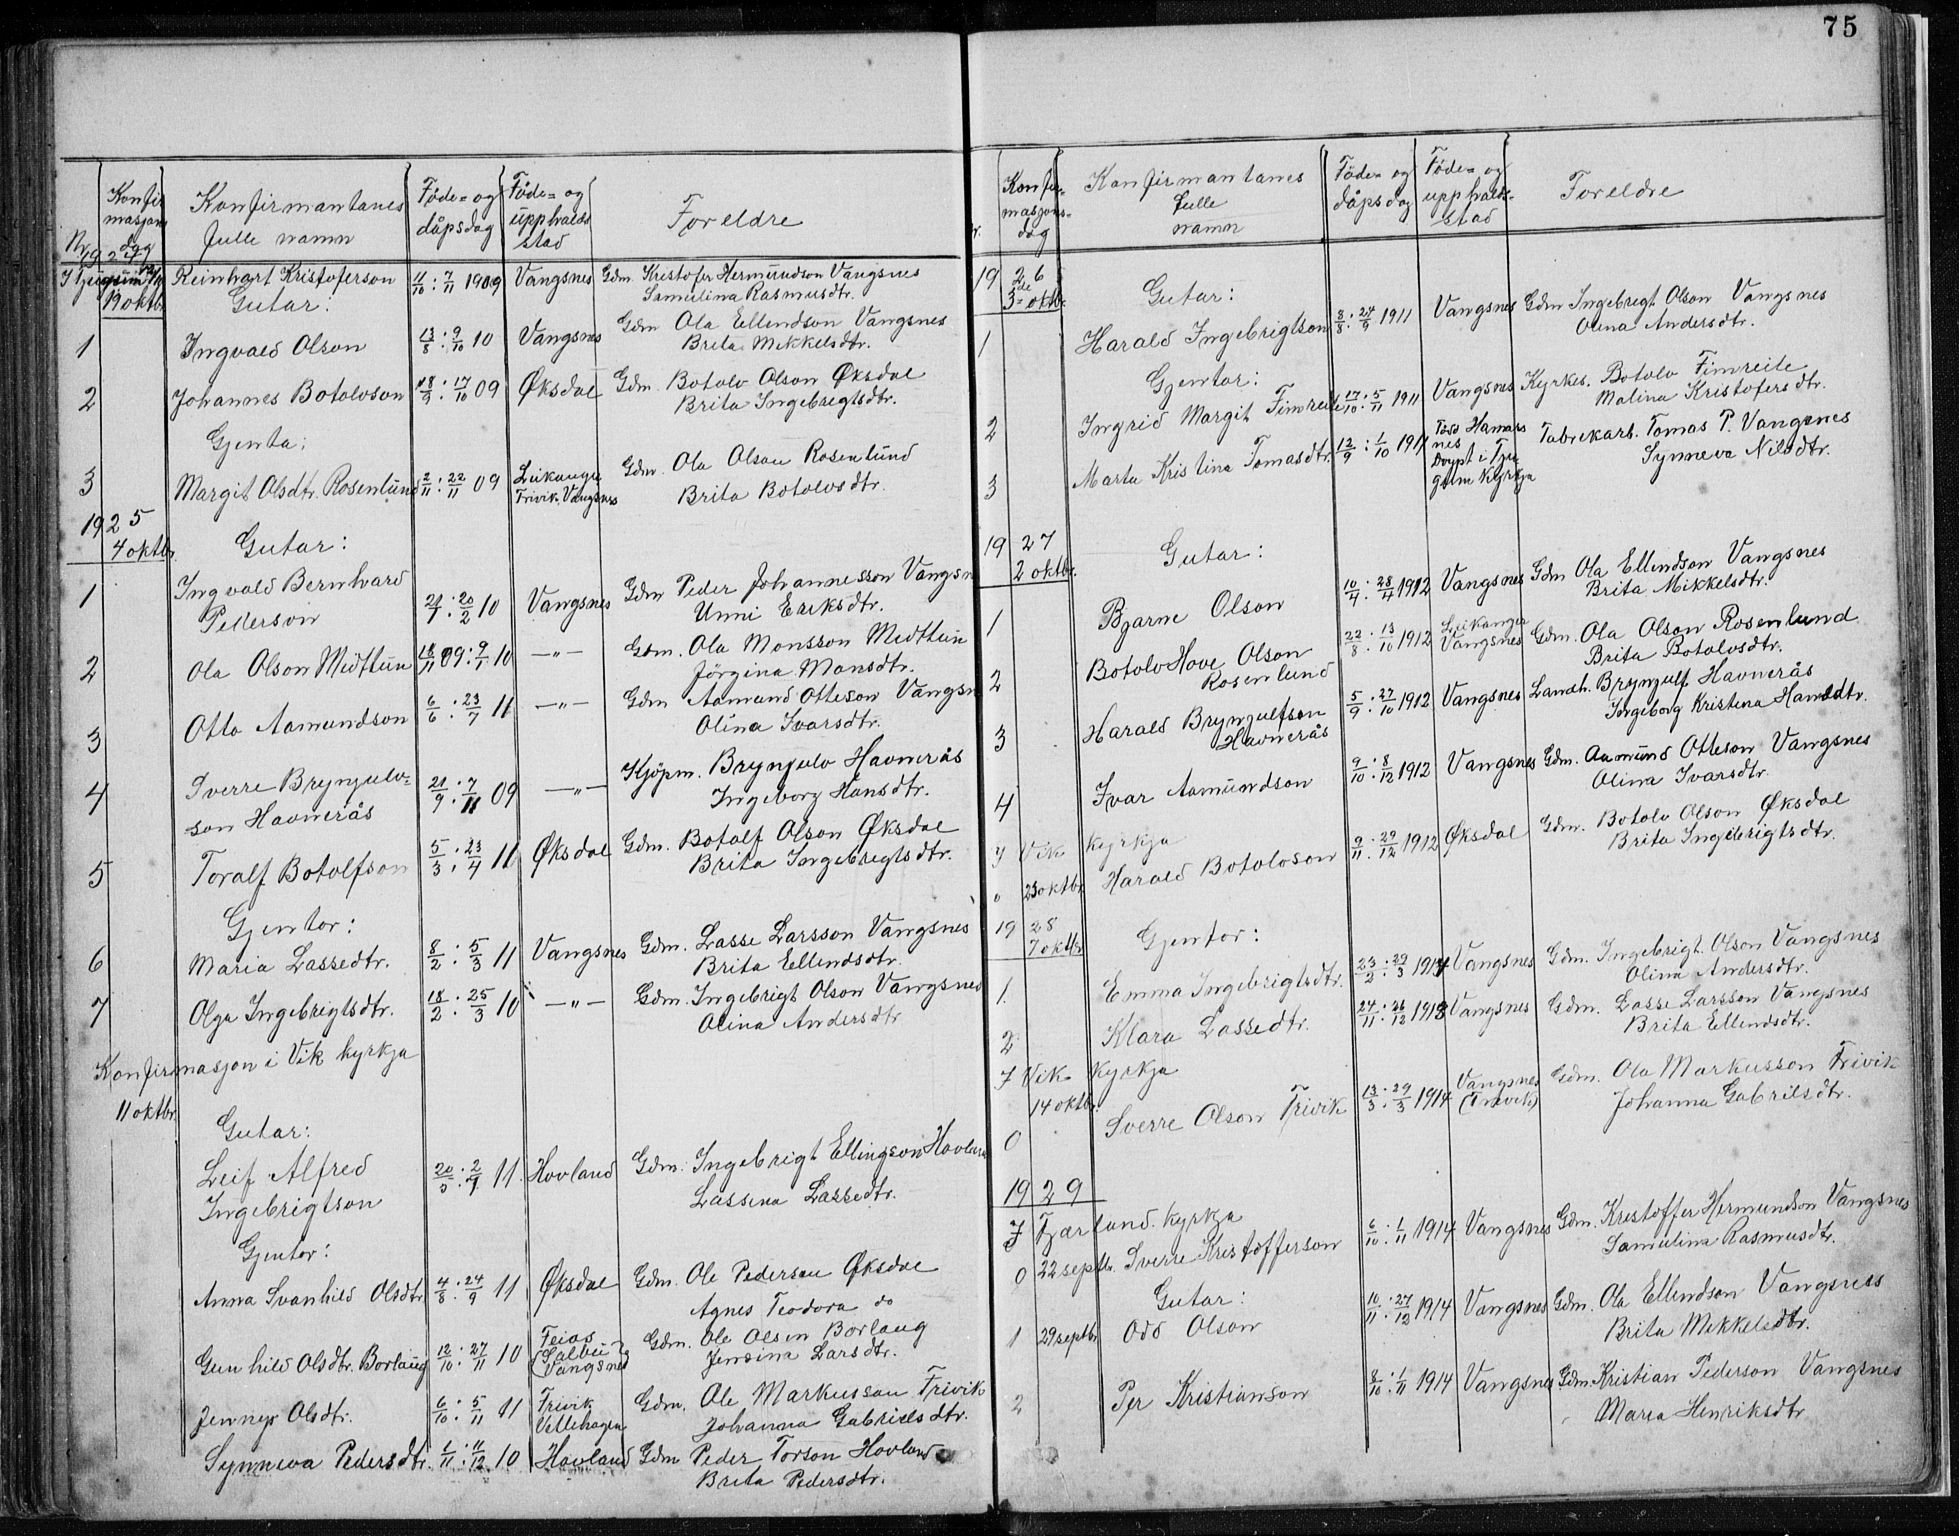 75
Nr. Konfirmasjons dag Konfirmantanes fulle namn Føde= og dåpsdag Føde= og upphalds stad Foreldre
1924
I Tjugum
19 oktb. Reinhart Kristoferson 11/10 : 7/11 1909 Vangsnes Gdm. Kristofer Hermundson Vangsnes
Samulina Rasmusdtr.
Gutar:
1 Ingvald Olson 13/8 : 9/10 10 Vangsnes Gdm Ola Ellendson Vangsnes
Brita Mikkelsdtr.
2 Johannes Botolvson 18/9 : 17/10 09 Øksdal Gdm. Botolv Olson Øksdal
Brita Ingebregtsdtr.
Gjenta:
3 Margit Olsdtr. Rosenlund 2/11 : 22/11 09 Leikanger Gdm. Ola Olson Rosenlund
Trivik. Vangsnes Brita Botolvsdtr.
1925
4 oktbr. Gutar:
1 Ingvald Bernhard
Pederson 21/1 : 20/2 10 Vangsnes Gdm Peder Johannesson Vangsn
Unni Eriksdtr.
2 Ola Olson Midttun 18/11 09 : 9/1 10 —"— Gdm. Ola Monsson Midttun
Jörgina Monsdtr.
3 Otto Aamundson 6/6 : 23/7 11 —"— Gdm Aamund Otteson Vangsn
Olina Ivarsdtr.
4 Sverre Brynjulv=
son Havnerås 21/9 : 7/11 09 —"— Kjöpm. Brynjulv Havnerås
Ingeborg Hansdtr.
5 Toralf Botolfson 5/3 : 23/4 11 Øksdal Gdm. Botolf Olson Øksdal
Brita Ingebregtsdtr.
Gjentor:
6 Maria Lassedtr. 8/2 : 5/3 11 Vangsnes Gdm. Lasse Larsson Vangsnes
Brita Ellendsdtr.
7 Olga Ingebrigtsdtr. 18/2 : 25/3 10 —"— Gdm. Ingebrigt Olson Vangsnes
Olina Andersdtr
Konfirmasjon i Vik kyrkja
11 oktbr.
Gutar:
Leif Alfred
Ingebrigtson 20/5 : 2/7 11 Hovland Gdm: Ingebrigt Ellingson Hovland
Lassena Lassedtr.
Gjentor:
Anna Svanhild Olsdtr 4/8 : 24/9 11 Øksdal Gdm. Ole Pederson Øksdal
Agnes Teodora do
Gunhild Olsdtr. Borlaug 12/10 : 27/11 10 Feios Gdm. Ole Olsen Borlaug
Vangsnes Jensina Larsdtr.
Jenny Olsdtr. 6/10 : 5/11 11 Trivik Gdm. Ole Markusson Trivik
Villehagen Johanna Gabrielsdtr.
Synneva Pedersdtr. 1/11 : 11/12 10 Hovland Gdm Peder Torson Hovland
Brita Pedersdtr.
Konfir=masjons=dag Konfirmantanes fulle namn Føde= og dåpsdag Føde= og upphalds=stad Foreldre
1926
3= oktbr. Gutar:
1 Harald Ingebrigtson 8/8 : 24/9 1911 Vangsnes Gdm Ingebregt Olson Vangsnes
Olina Andersdtr.
Gjentor:
2 Ingrid Margit Fimreite 17/10 : 5/11 1911 Vangsnes Kyrkes. Botolv Fimreite
Malina Kristofersdtr.
3 Marta Kristina Tomasdtr. 12/9 : 1/10 1911 Född Hamars
nes
Döypt i Tju
gum kyrkja Fabrekarb. Tomas P. Vangsnes
Synneva Nilsdtr.
1927
2 oktbr. Gutar:
1 Bjarne Olson 10/4 : 28/4 1912 Vangsnes Gdm Ola Ellendson Vangsnes
Brita Mikkelsdtr.
2 Botolv Hove Olson
Rosenlund 22/8 : 13/10 1912 Leikanger
Vangsnes Gdm. Ola Olson Rosenlund
Brita Botolvsdtr.
3 Harald Brynjulfson
Havnerås 5/9 : 27/10 1912 Vangsnes Landh. Brynjulf Havnerås
Ingeborg Kristina Hansdtr.
4 Ivar Aamundson 9/10 : 8/12 1912 Vangsnes Gdm. Aamund Otteson Vangsnes
Olina Ivarsdtr.
I Vik kyrkja
" 23 oktbr. Harald Botolvson 9/11 : 29/12 1912 Øksdal Gdm. Botolv Olson Øksdal
Brita Ingebrigtsdtr.
1928
7 oktbr Gjentor:
1. Emma Ingebrigtsdtr. 23/2 : 29/3 1914 Vangsnes Gdm. Ingebrigt Olson Vangsnes
Olina Andersdtr.
2 Klara Lassedtr. 27/11 : 26/12 1913 Vangsnes Gdm. Lasse Larsson Vangsnes
Brita Ellendsdtr.
I Vik kyrkja
14 oktbr.
0 Sverre Olson Trivik 13/3 : 29/3 1914 Vangsnes
(Trivik) Gdm. Ola Markusson Trivik
Johanna Gabrilsdtr.
1929
I Fjærland kyrkja
0 22 septbr. Sverre Kristofferson 6/10 : 1/11 1914 Vangsnes Gdm. Kristoffer Hermundson Vangsnes
Samulina Rasmusdtr.
Gutar:
1 29 septbr Odd Olson 10/11 : 27/12 1914 Vangsnes Gdm. Ola Ellendson Vangsness
Brita Mikkelsdtr.
2 Per Kristianson 8/10 : 1/11 1914 Vangsnes Gdm. Kristian Pederson Vangsnes
Maria Henriksdtr